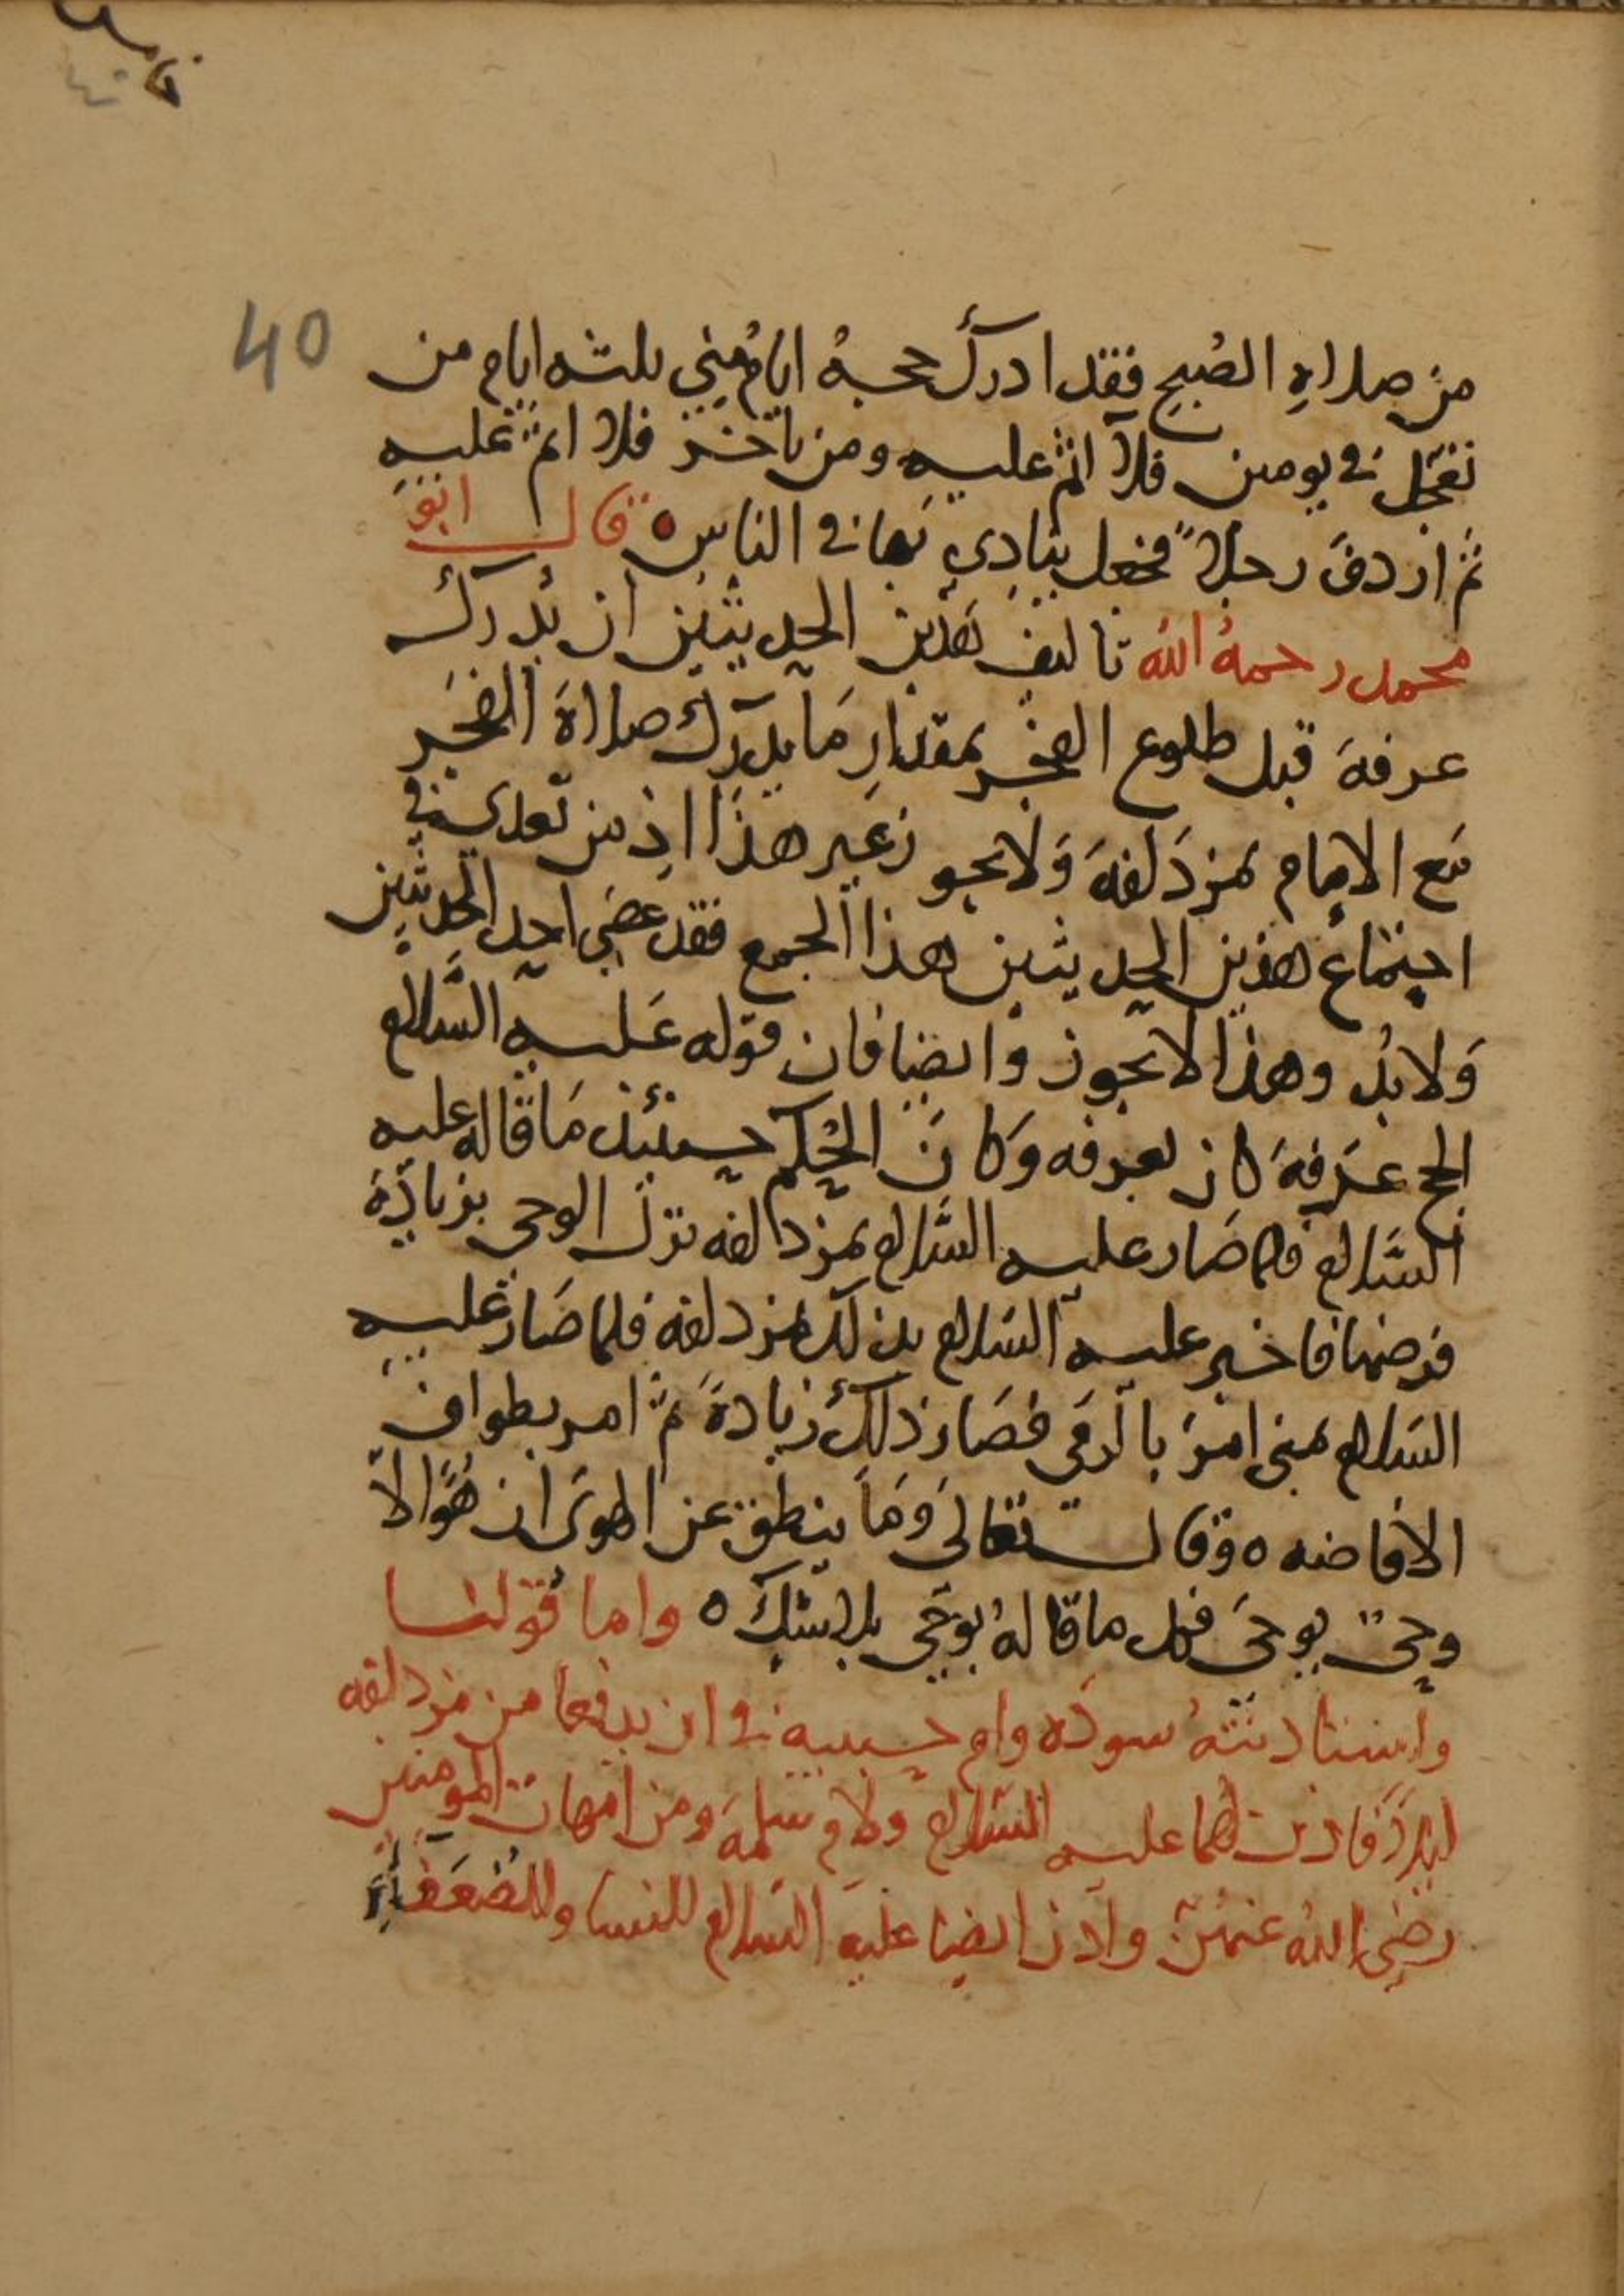 40
من صلاةِ الصُبح فقد ادرك حجهُ ايامُ مِني ثلثه ايام من
تعجل في يومين فلا اثم عليه ومن تاخر فلا اثم عليه
ثم اردف رجلاً فجعل ينادي بها في الناس ٥ قال ابو
محمد رحمهُ الله تاليف هذين الحديثين ان يُدرك
عرفة قبل طلوع الفجر بمقدار مَا يدرك صلاة الفجر
مَع الامام بمزدَلفة وَلا يجوز غير هذا اذ من تعدي في
اجتماعُ هذين الحديثين هذا الجمع فقد عصَي احد الحديثين
وَلا بُد وهذا لا يجوز وايضا فان قوله عَليه السَّلام
الحج عَرَفة كان بعرفه وَكانَ الحُكم حينئذ مَا قاله عليه
السَّلام فلما صَار عليه السَّلام بمزدالفه نزل الوحي بزيادَة
فرضها فاخبر عليه السَلام بذلك بمزدلفه فلما صَار عليه
السَلام بمني امرَ بالرمَي فصَار ذلك زيادةً ثم امر بطواف
الافاضه ٥ وقال تعَالى وَمَا ينطق عن الهوَى ان هُوَ الا
وحيٌ يوحَى فكل ما قالهُ بوحَي بلا شكٍ ٥ واما قولنا
واستئاذنتهُ سودَه وام حبيبة في ان يدفعا من مزدلفه
ليلاً فاذن لهما عليه السَّلام ولام سَلمة ومن امهات المومنين
رضيَ اللهُ عنهُنّ واذن ايضا عليه السَلام للنسا وللضعَفاءِ